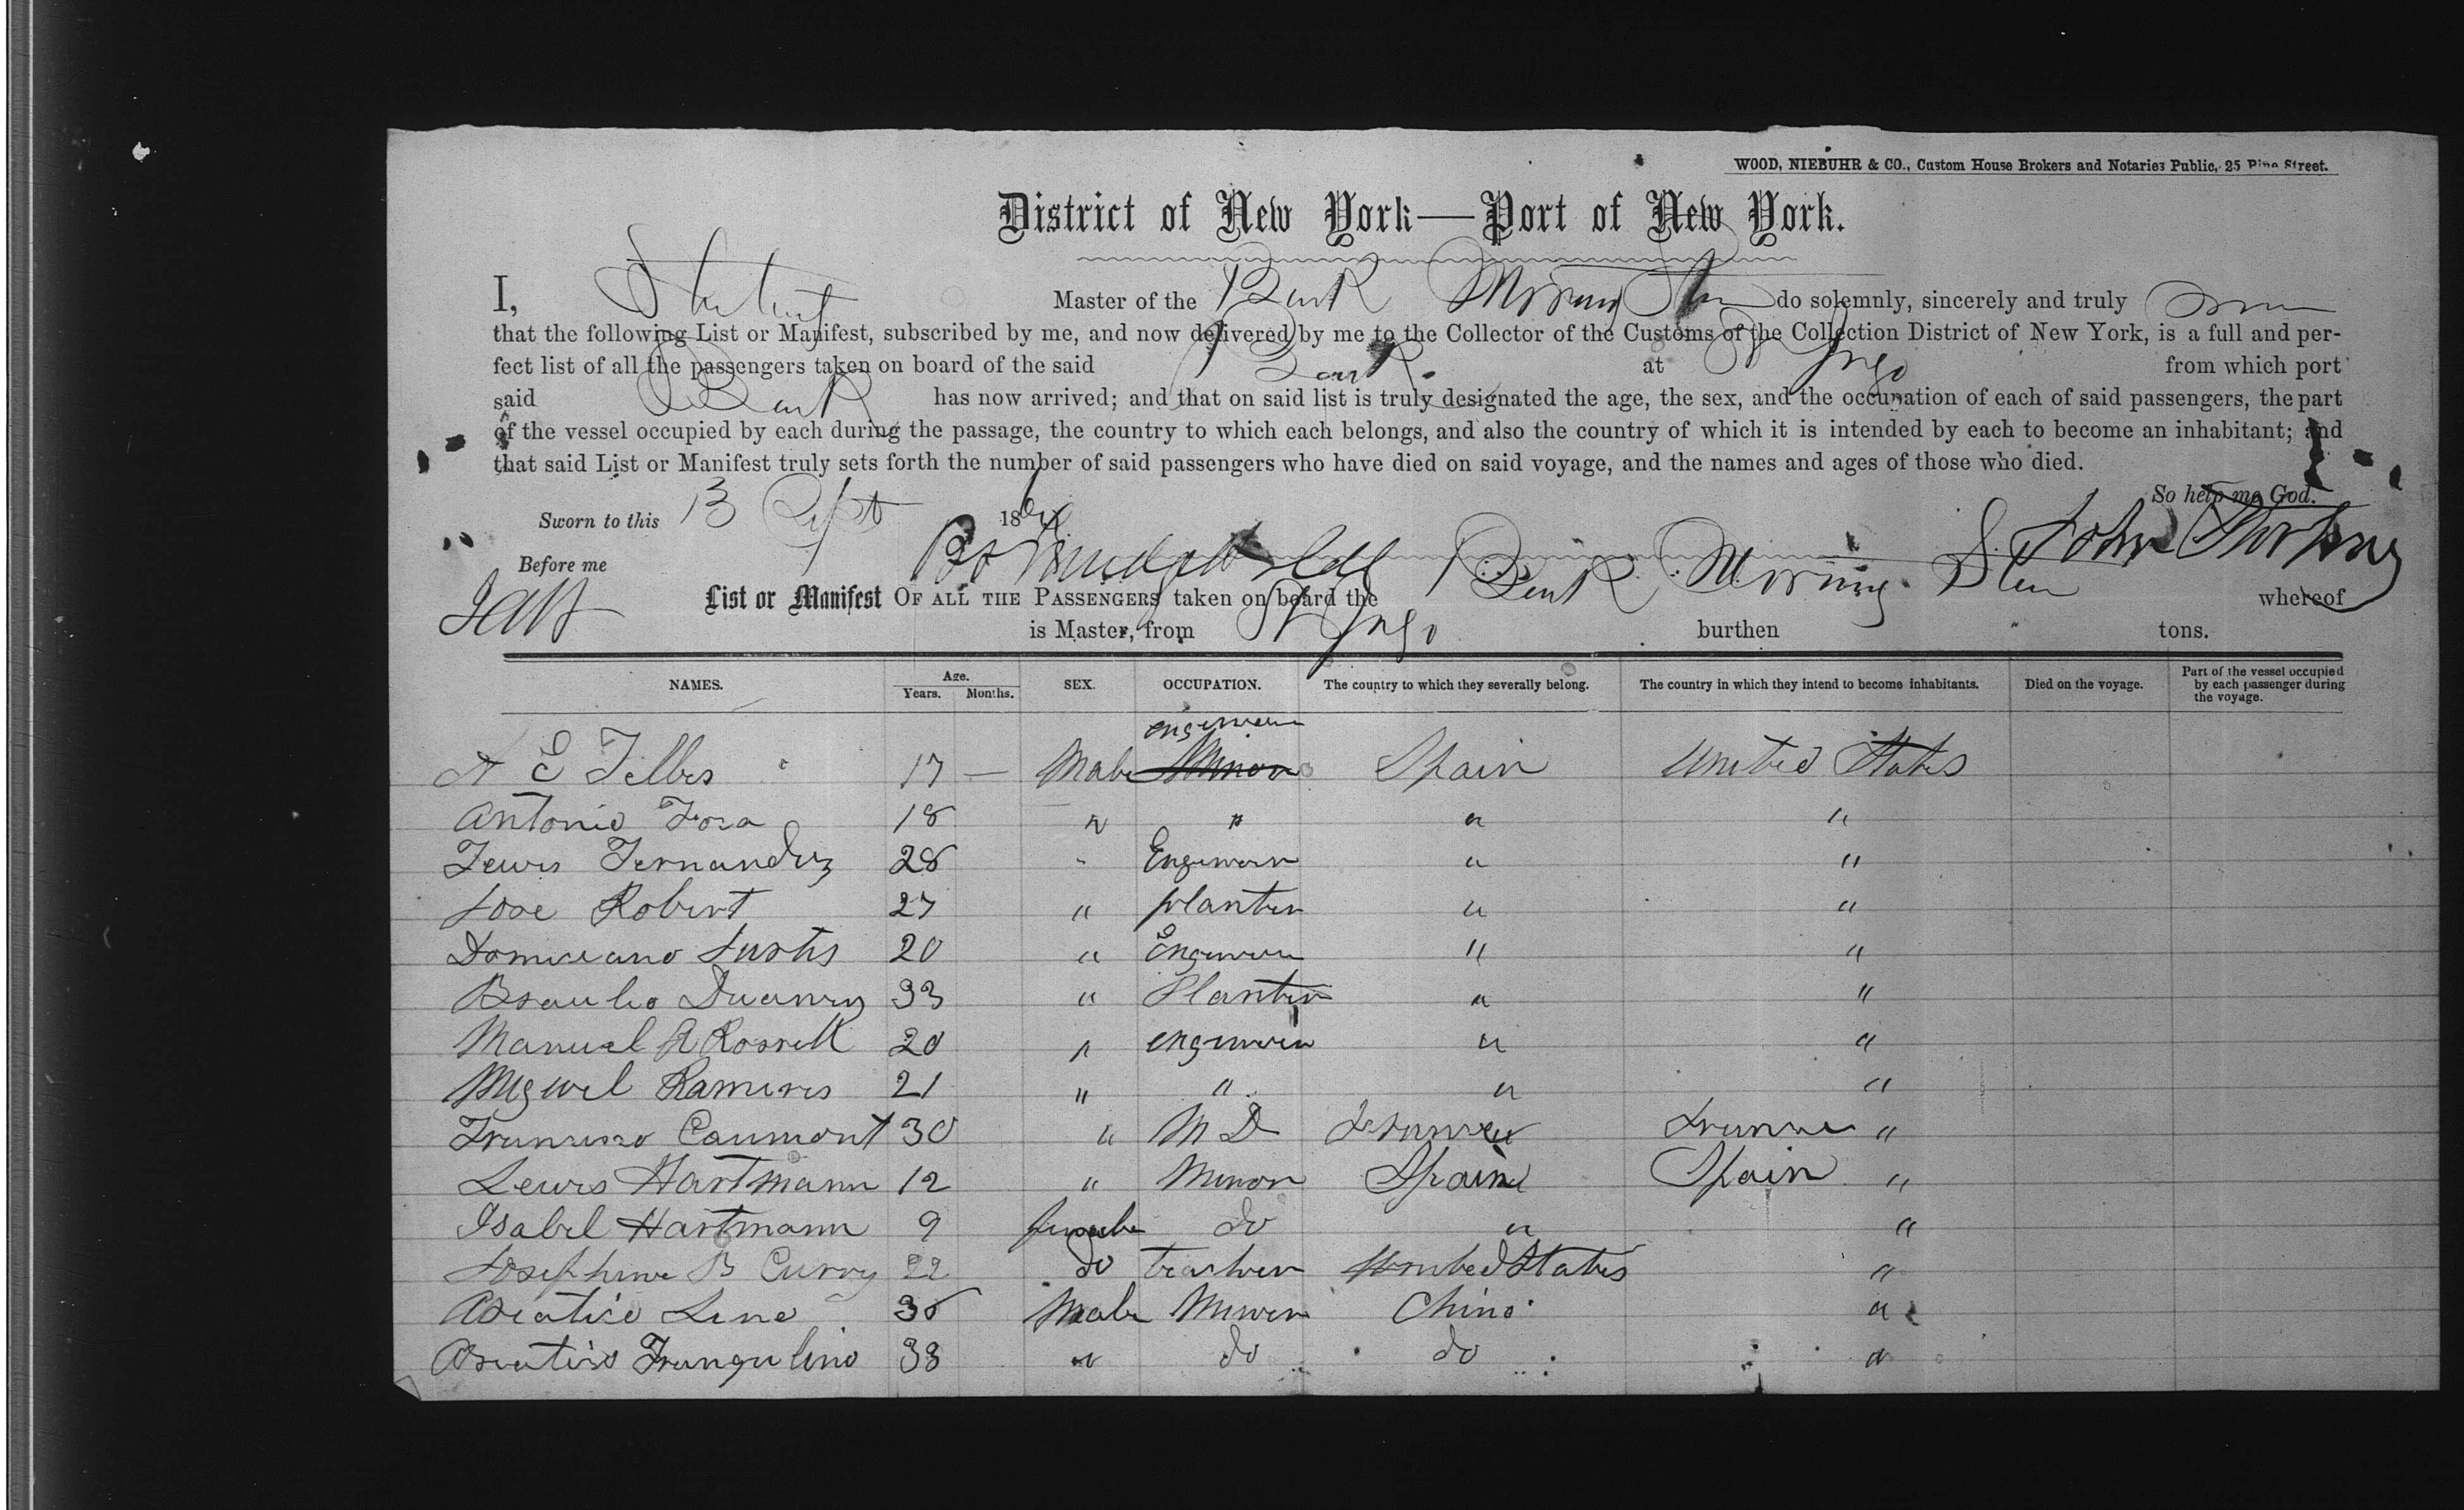 WOOD, NIEBUHR & CO., Custom House Brokers and Notaries Public, 25 Pine Street.
District of New York—Port of New York.
I, Master of the Bark Morning Star do solemnly, sincerely and truly
that the following List or Manifest, subscribed by me, and now delivered by me to the Collector of the Customs of the Collection District of New York, is a full and per-
fect list of all the passengers taken on board of the said Bark at St Jago from which port
said Bark has now arrived; and that on said list is truly designated the age, the sex, and the occupation of each of said passengers, the part
of the vessel occupied by each during the passage, the country to which each belongs, and also the country of which it is intended by each to become an inhabitant; and
that said List or Manifest truly sets forth the number of said passengers who have died on said voyage, and the names and ages of those who died.
So help me God.
Sworn to this 13 Sept 186
John
Before me
List or Manifest OF ALL THE PASSENGERS taken on board the Bark Morning Star whereof
is Master, from St Jago burthen tons.
NAMES. Age. Years. Months. SEX. OCCUPATION. The country to which they severally belong. The country in which they intend to become inhabitants. Died on the voyage. Part of the vessel occupied by each passenger during the voyage.
engineer
A E Telles 17 — Male Minor Spain United States
Antonio Fora 18 " " " "
Lewis Fernandez 28 " Engineer " "
Jose Robert 27 " planter " "
Justis 20 " Engineer " "
Braulio Duanny 33 " Planter " "
Manuel A Rosell 20 " engineer " "
Miguel Ramires 21 " " " "
Francisco Caumont 30 " M D France "
Lewis Hartmann 12 " Minor Spain Spain "
Isabel Hartmann 9 female do " "
Josephine B Curry 22 do teacher United States "
Asiatico Lino 38 Male Miner China "
Asiatico Franqulino 33 " do do "